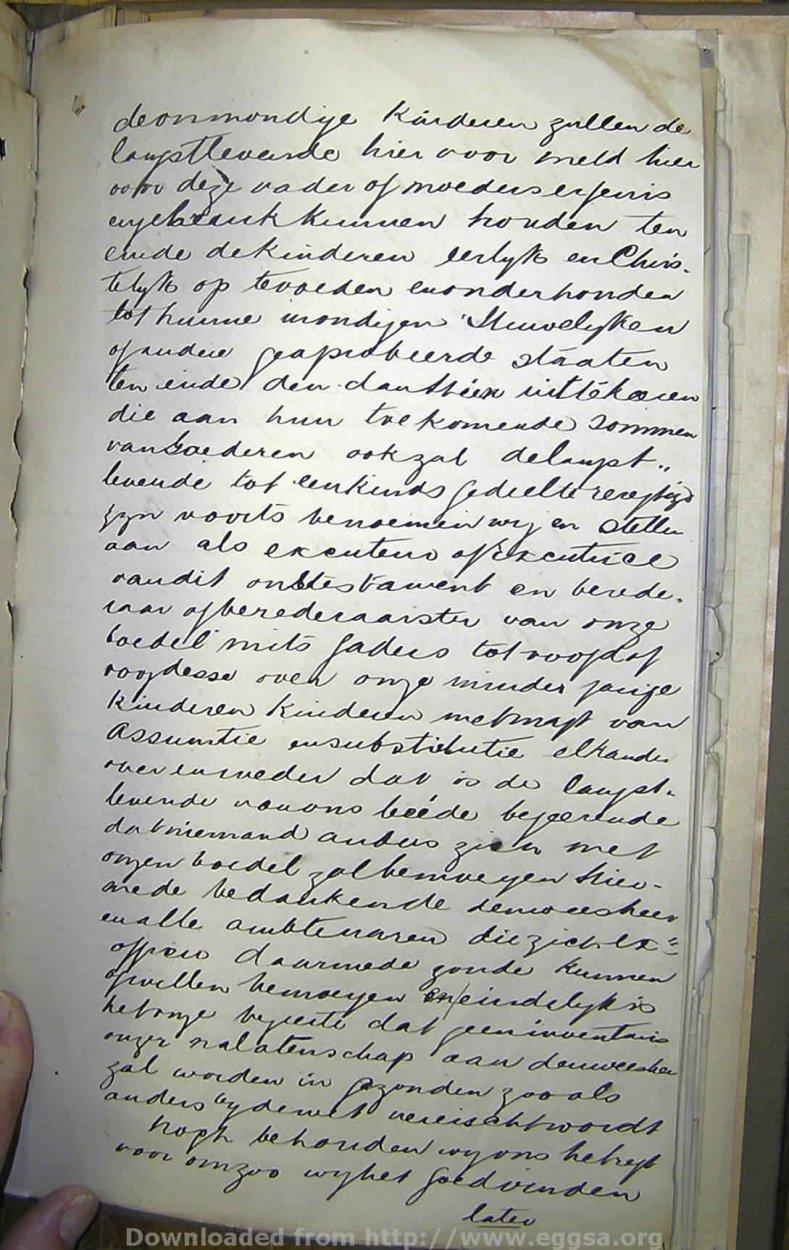 de onmondige Kinderen zullen de
langstlevende hier voor meld hier
voor deze vader of moeders erfenis
en gebruik kunnen houden ten
einde de kinderen eerlyk en Chris-
telyk op te voeden en onderhouden
tot hunne mondigen Huwelyken
of andere geaprobeerde staaten
ten einde den dan hien uittekeeren
die aan hun toe komende Sommen
van Goederen ook zal de langst„
levende tot een kinds gedeelte geregtigd
zyn voorts benoemen wij en stellen
aan als executeur of Executrice
van dit ons testament en berede-
raar of beredderaarster van onze
boedel mits gaders tot voogd of
voogdesse over onze minder jarige
Kinderen Kinderen met magt van
Assumtie en substitutie elkander
over en weder dat is de langst-
levende van ons beéde begeerende
dat niemand anders zich met
onzen boedel zal bemoeyen Hier-
mede bedankende de weesheer
en alle ambtenaren die zich ex=
officio daarmede zoude kunnen
of willen bemoeyen en eindelyk is
het onze begeerte dat geen inventaris
onzer nalatenschap aan de weesheer
zal worden in gezonden zoo als
anders by de wet vereischt wordt
noch behouden wy ons het regt
voor om zoo wy het goedvinden
later
Downloaded from http://www.eggsa.org